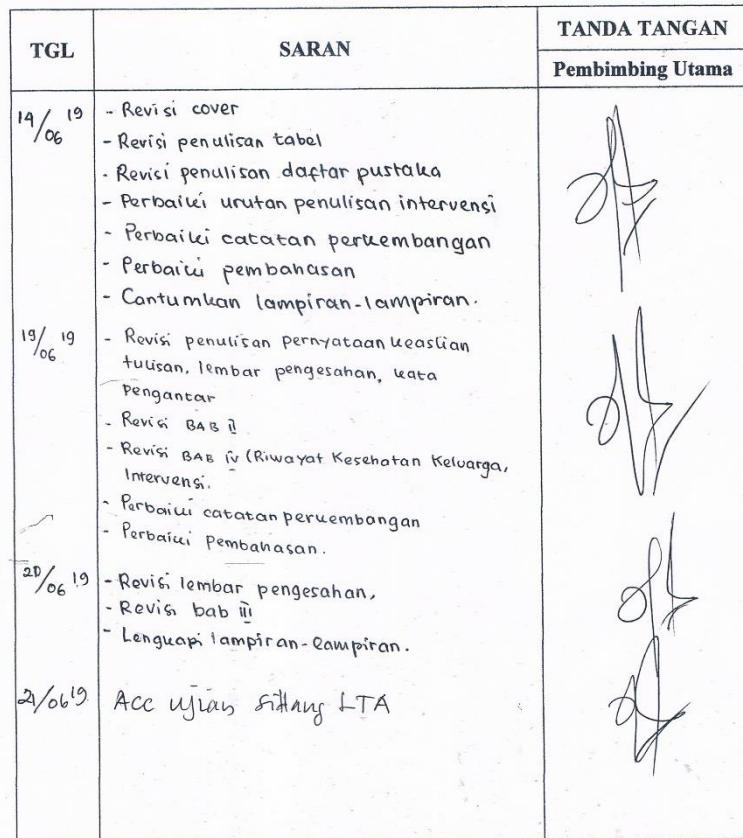 TGL
SARAN
TANDA TANGAN
Pembimbing Utama
14/06 19
- Revisi cover
- Revisi penulisan tabel
- Revisi penulisan daftar pustaka
- Perbaiki urutan penulisan intervensi
- Perbaiki catatan perkembangan
- Perbaiki pembahasan
- Cantumkan lampiran-lampiran.
19/06 19
- Revisi penulisan pernyataan keaslian
tulisan, lembar pengesahan, kata
pengantar
- Revisi BAB II
- Revisi BAB IV (Riwayat Kesehatan Keluarga,
Intervensi.
- Perbaiki catatan perkembangan
- Perbaiki pembahasan.
20/06 19
- Revisi lembar pengesahan,
- Revisi bab III
- Lengkapi lampiran-lampiran.
21/06 19
Acc ujian sidang LTA